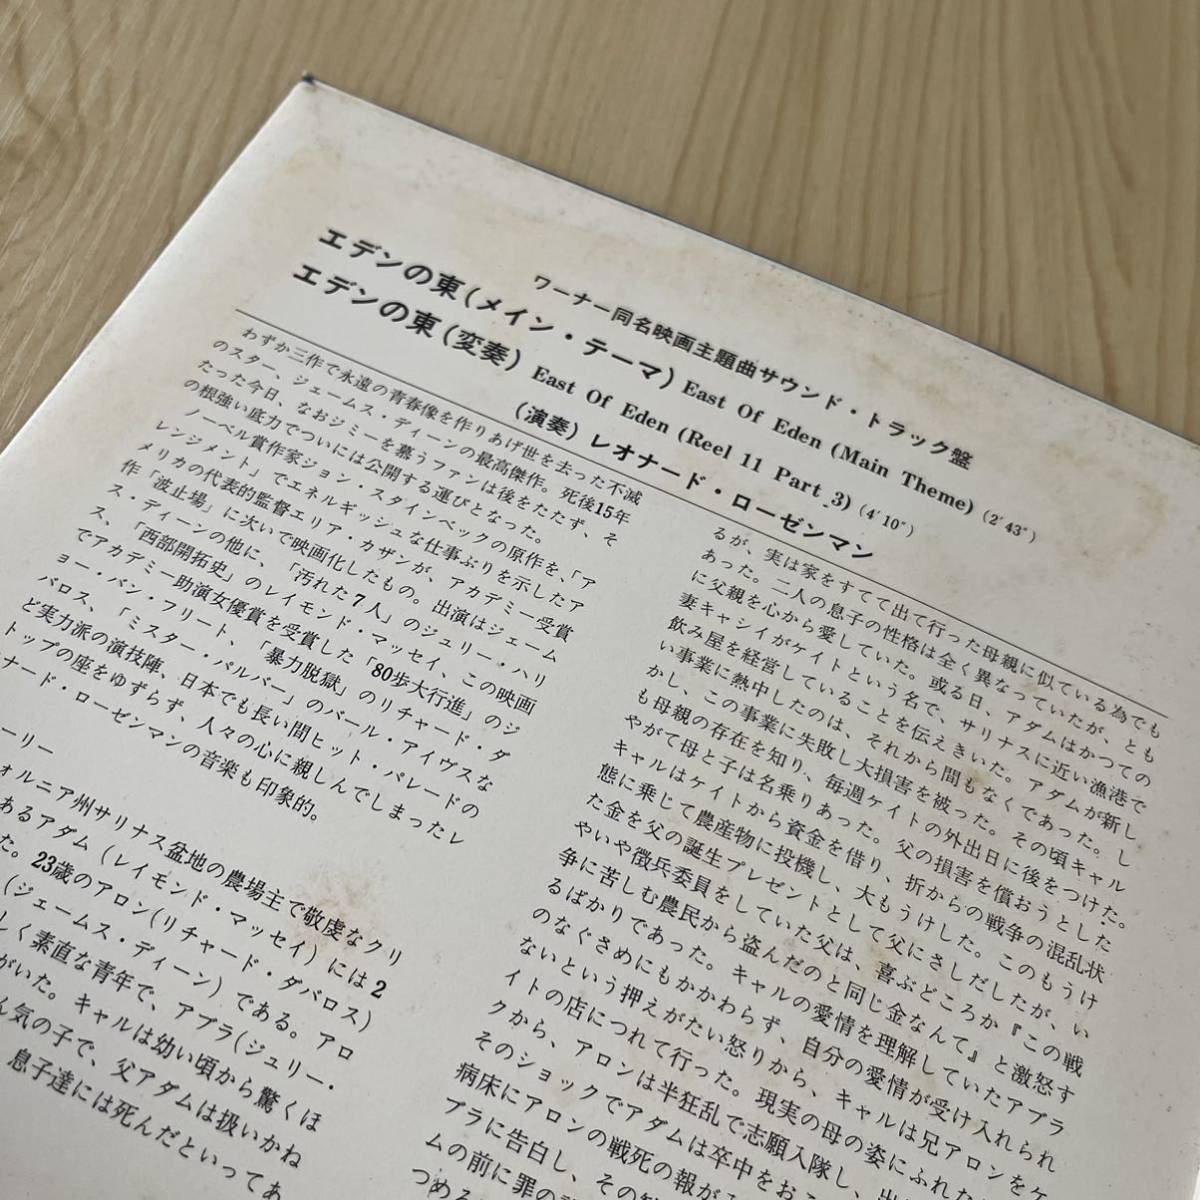 ワーナー同名映画主題曲サウンド・トラック盤
エデンの東(メイン・テーマ) East Of Eden (Main Theme) (2′43″)
エデンの東(変奏) East Of Eden (Reel 11 Part 3) (4′10″)
(演奏) レオナード・ローゼンマン
わずか三作で永遠の青春像を作りあげ世を去った不滅
のスター、ジェームス・ディーンの最高傑作。死後15年
たった今日、なおジミーを慕うファンは後をたたず、そ
の根強い底力でついには公開する運びとなった。
ノーベル賞作家ジョン・スタインベックの原作を、「ア
レンジメント」でエネルギッシュな仕事ぶりを示したア
メリカの代表的監督エリア・カザンが、アカデミー受賞
作「波止場」に次いで映画化したもの。出演はジェーム
ス・ディーンの他に、「汚れた7人」のジュリー・ハリ
ス、「西部開拓史」のレイモンド・マッセイ、この映画
でアカデミー助演女優賞を受賞した「80歩大行進」のジ
ョー・バン・フリート、「暴力脱獄」のリチャード・ダ
バロス、「ミスター・バルバー」のバール・アイヴスな
ど実力派の演技陣、日本でも長い間ヒット・パレードの
トップの座をゆずらず、人々の心に親しんでしまったレ
ナード・ローゼンマンの音楽も印象的。
ーリー
ォルニア州サリナス盆地の農場主で敬虔なクリ
あるアダム(レイモンド・マッセイ)には2
た。23歳のアロン(リチャード・ダバロス)
(ジェームス・ディーン)である。アロ
しく素直な青年で、アブラ(ジュリー・
がいた。キャルは幼い頃から驚くほ
ん気の子で、父アダムは扱いかね
息子達には死んだといってあ
るが、実は家をすてて出て行った母親に似ている為でも
あった。二人の息子の性格は全く異なっていたが、とも
に父親を心から愛していた。或る日、アダムはかつての
妻キャシイがケイトという名で、サリナスに近い漁港で
飲み屋を経営していることを伝えきいた。アダムが新し
い事業に熱中したのは、それから間もなくであった。し
かし、この事業に失敗し大損害を被った。その頃キャル
も母親の存在を知り、毎週ケイトの外出日に後をつけた。
やがて母と子は名乗りあった。父の損害を償おうとした
キャルはケイトから資金を借り、折からの戦争の混乱状
態に乗じて農産物に投機し、大もうけした。このもうけ
た金を父の誕生プレゼントとして父にさしだしたが、い
やいや徴兵委員をしていた父は、喜ぶどころか『この戦
争に苦しむ農民から盗んだのと同じ金なんて』と激怒す
るばかりであった。キャルの愛情を理解していたアブラ
のなぐさめにもかかわらず、自分の愛情が受け入れられ
ないという押えがたい怒りから、キャルは兄アロンをケ
イトの店につれて行った。現実の母の姿にふれた
クから、アロンは半狂乱で志願入隊し、出
そのショックでアダムは卒中をおこ
病床にアロンの戦死の報が
ブラに告白し、その
ムの前に罪の
つめる